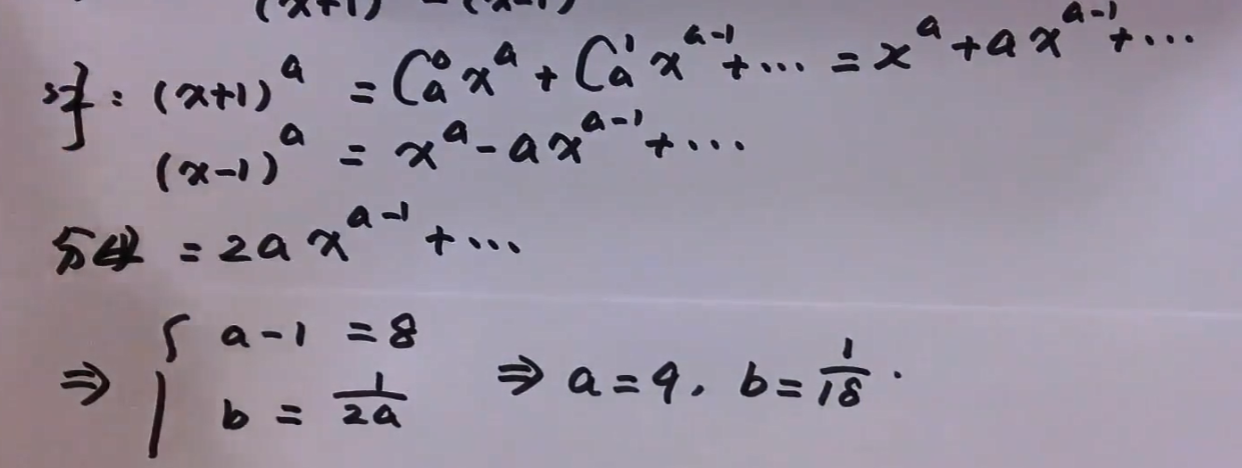 (x+1) - (x-1)
: (x+1)^a = C_a^0 x^a + C_a^1 x^{a-1} + ... = x^a + a x^{a-1} + ...
(x-1)^a = x^a - a x^{a-1} + ...
分母 = 2a x^{a-1} + ...
⇒ { a-1 = 8
b = 1/2a ⇒ a = 9, b = 1/18.